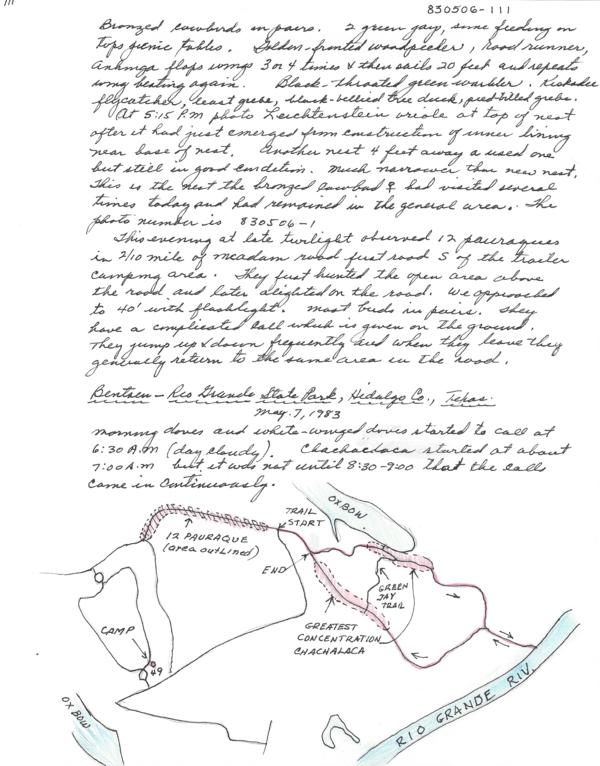 111
830506-111
Bronzed cowbirds in pairs. 2 green jays, some feeding on
tops picnic tables. Golden-fronted woodpecker, road runner,
Anhinga flaps wings 3 or 4 times & then sails 20 feet and repeats
wing beating again. Black-throated green warbler. Kiskadee
flycatcher, least grebe, black-bellied tree duck, pied-billed grebe.
At 5:15 P.M photo Leichtenstein oriole at top of nest
after it had just emerged from construction of inner lining
near base of nest. Another nest 4 feet away a used one
but still in good condition. Much narrower than new nest.
This is the nest the bronzed cowbird ♀ had visited several
times today and had remained in the general area. The
photo number is 830506-1
This evening at late twilight observed 12 pauraques
in 2/10 mile of macadam road just road S of the trailer
camping area. They just hunted the open area above
the road and later alighted on the road. We approached
to 40' with flashlight. Most birds in pairs. They
have a complicated call which is given on the ground.
They jump up & down frequently and when they leave they
generally return to the same area in the road.
Bentsen - Rio Grande State Park, Hidalgo Co., Texas.
May. 7, 1983
Morning doves and white-winged doves started to call at
6:30 A.M (day cloudy). Chachacdaca started at about
7:00 A.M but it was not until 8:30-9:00 that the calls
came in continuously.
OXBOW.
TRAIL
START
12 PAURAQUE
(area outlined)
END
GREEN
JAY
TRAIL
GREATEST
CONCENTRATION
CHACHALACA
CAMP
49
OXBOW
RIO GRANDE RIV.